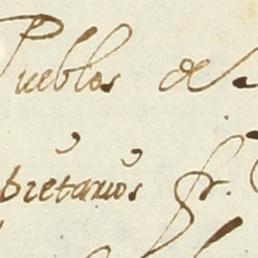 Pueblos de
bietarios fr.